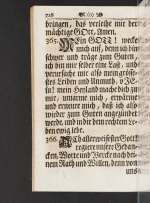 128
bringen, das verleihe mir der
mächtige GOtt, Amen.
365. MEin GOTT! wecke
mich auf, denn ich bin
schwer und träge zum Guten,
ich bin mir selber eine Last, und
verursache mir also mein größe-
stes Leiden und Unmuth, o JE-
su! mein Heyland mache dich zu
mir, umarme mich, erwärme
und ermuntere mich, daß ich also
wieder zum Guten angezündet
werde, und in der dem rechten Le-
ben ewig lebe.
366. ACh allergnädigster GOtt
regiere unsere Gedan-
cken, Worte und Wercke nach dei-
nem Rath und Willen, denn von
uns